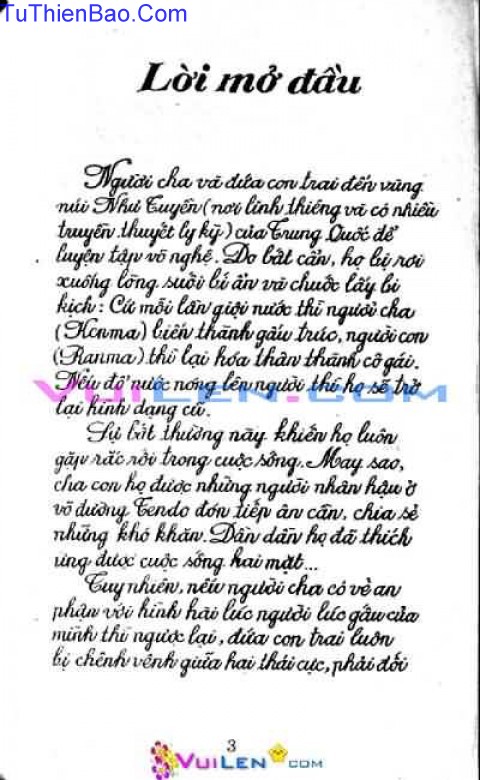 TuThienBao.Com
Lời mở đầu
Người cha và đứa con trai đến vùng
núi Như Tuyền (nơi linh thiêng và có nhiều
truyền thuyết ly kỳ) của Trung Quốc để
luyện tập võ nghệ. Do bất cẩn, họ bị rơi
xuống lòng suối bí ẩn và chuốc lấy bi
kịch: Cứ mỗi lần giội nước thì người cha
(Genma) biến thành gấu trúc, người con
(Ranma) thì lại hóa thân thành cô gái.
Nếu đổ nước nóng lên người thì họ sẽ trở
lại hình dạng cũ.
Sự bất thường này khiến họ luôn
gặp rắc rối trong cuộc sống. May sao,
cha con họ được những người nhân hậu ở
võ đường Tendo đón tiếp ân cần, chia sẻ
những khó khăn. Dần dần họ đã thích
ứng được cuộc sống hai mặt...
Tuy nhiên, nếu người cha có vẻ an
phận với hình hài lúc người lúc gấu của
mình thì ngược lại, đứa con trai luôn
bị chênh vênh giữa hai thái cực, phải đối
3
VuiLen.com